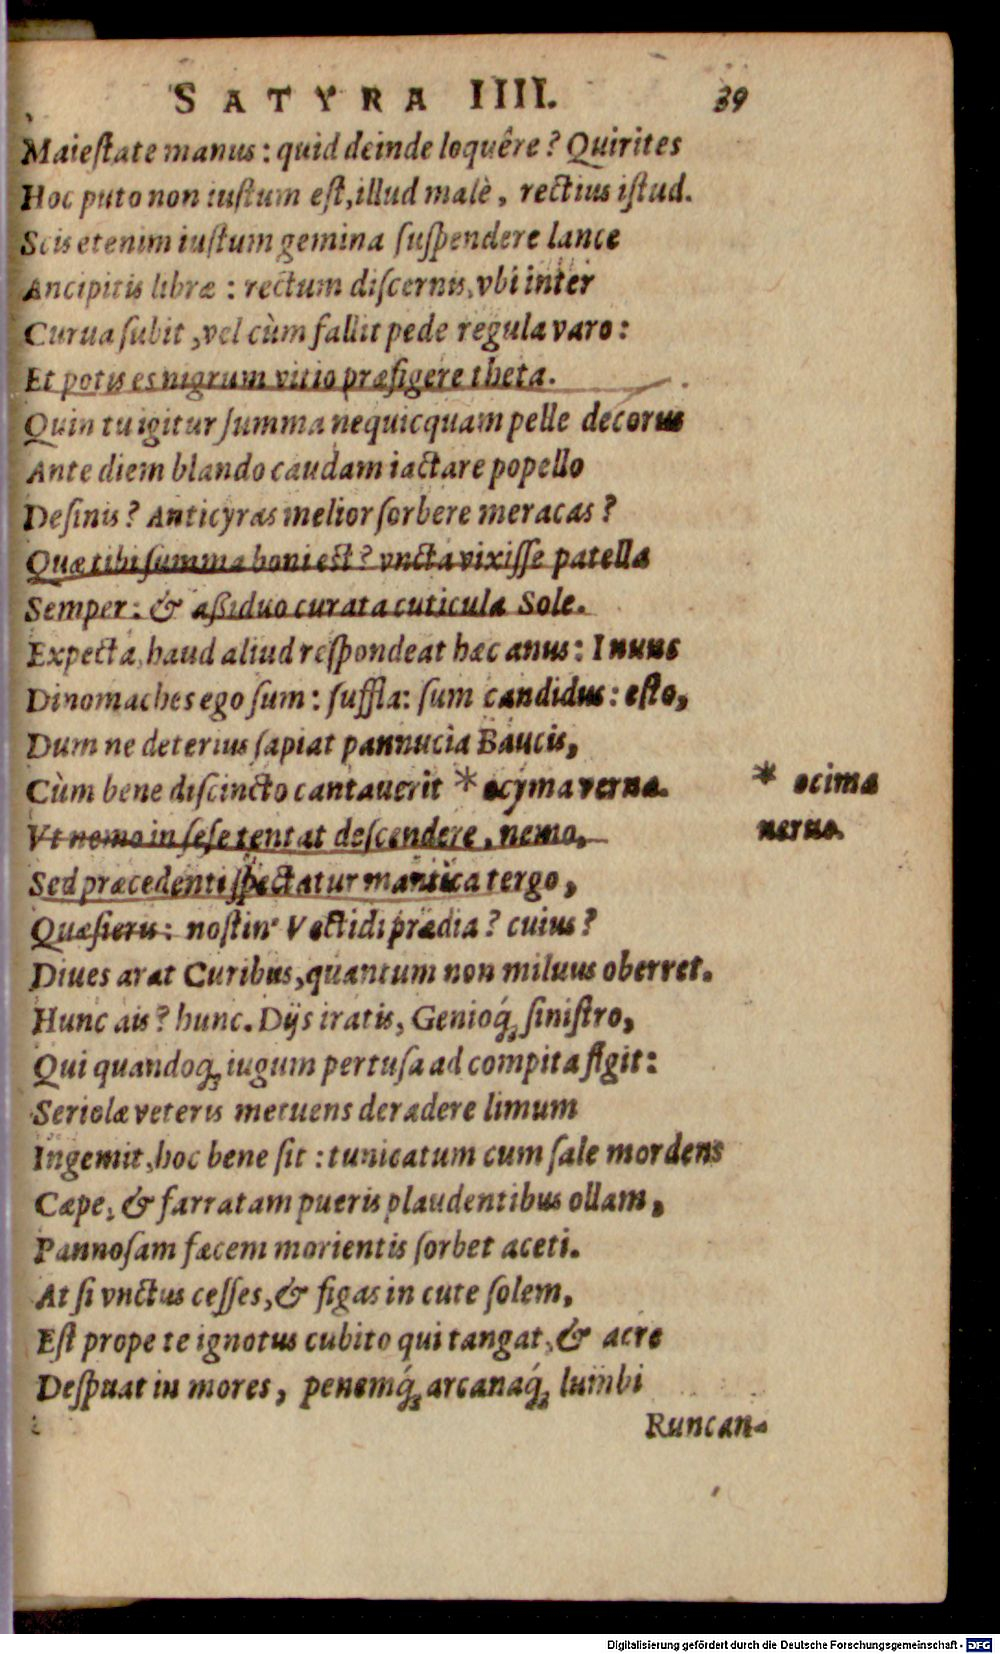 SATYRA IIII. 39
Maiestate manus: quid deinde loquêre? Quirites
Hoc puto non iustum est, illud malè, rectius istud.
Scis etenim iustum gemina suspendere lance
Ancipitis libræ: rectum discernis, vbi inter
Curua subit, vel cùm fallit pede regula varo:
Et potis es nigrum vitio præfigere theta.
Quin tu igitur summa nequicquam pelle decorus
Ante diem blando caudam iactare popello
Desinis? Anticyras melior sorbere meracas?
Quæ tibi summa boni est? vncta vixisse patella
Semper: & aßiduo curata cuticula Sole.
Expecta, haud aliud respondeat hæc anus: I nunc
Dinomaches ego sum: suffla: sum candidus: esto,
Dum ne deterius sapiat pannucia Baucis,
Cùm bene discincto cantauerit * ocyma verna. * ocima
nernæ.
Vt nemo in sese tentat descendere, nemo,
Sed præcedenti spectatur mantica tergo,
Quæsieris: nostin' Vectidi prædia? cuius?
Diues arat Curibus, quantum non miluus oberret.
Hunc ais? hunc. Dijs iratis, Genioq́; sinistro,
Qui quandoq; iugum pertusa ad compita figit:
Seriolæ veteris metuens deradere limum
Ingemit, hoc bene sit: tunicatum cum sale mordens
Cæpe, & farratam pueris plaudentibus ollam,
Pannosam fæcem morientis sorbet aceti.
At si vnctus cesses, & figas in cute solem,
Est prope te ignotus cubito qui tangat, & acre
Despuat in mores, penemq́; arcanaq́; lumbi
Runcan-
Digitalisierung gefördert durch die Deutsche Forschungsgemeinschaft - DFG